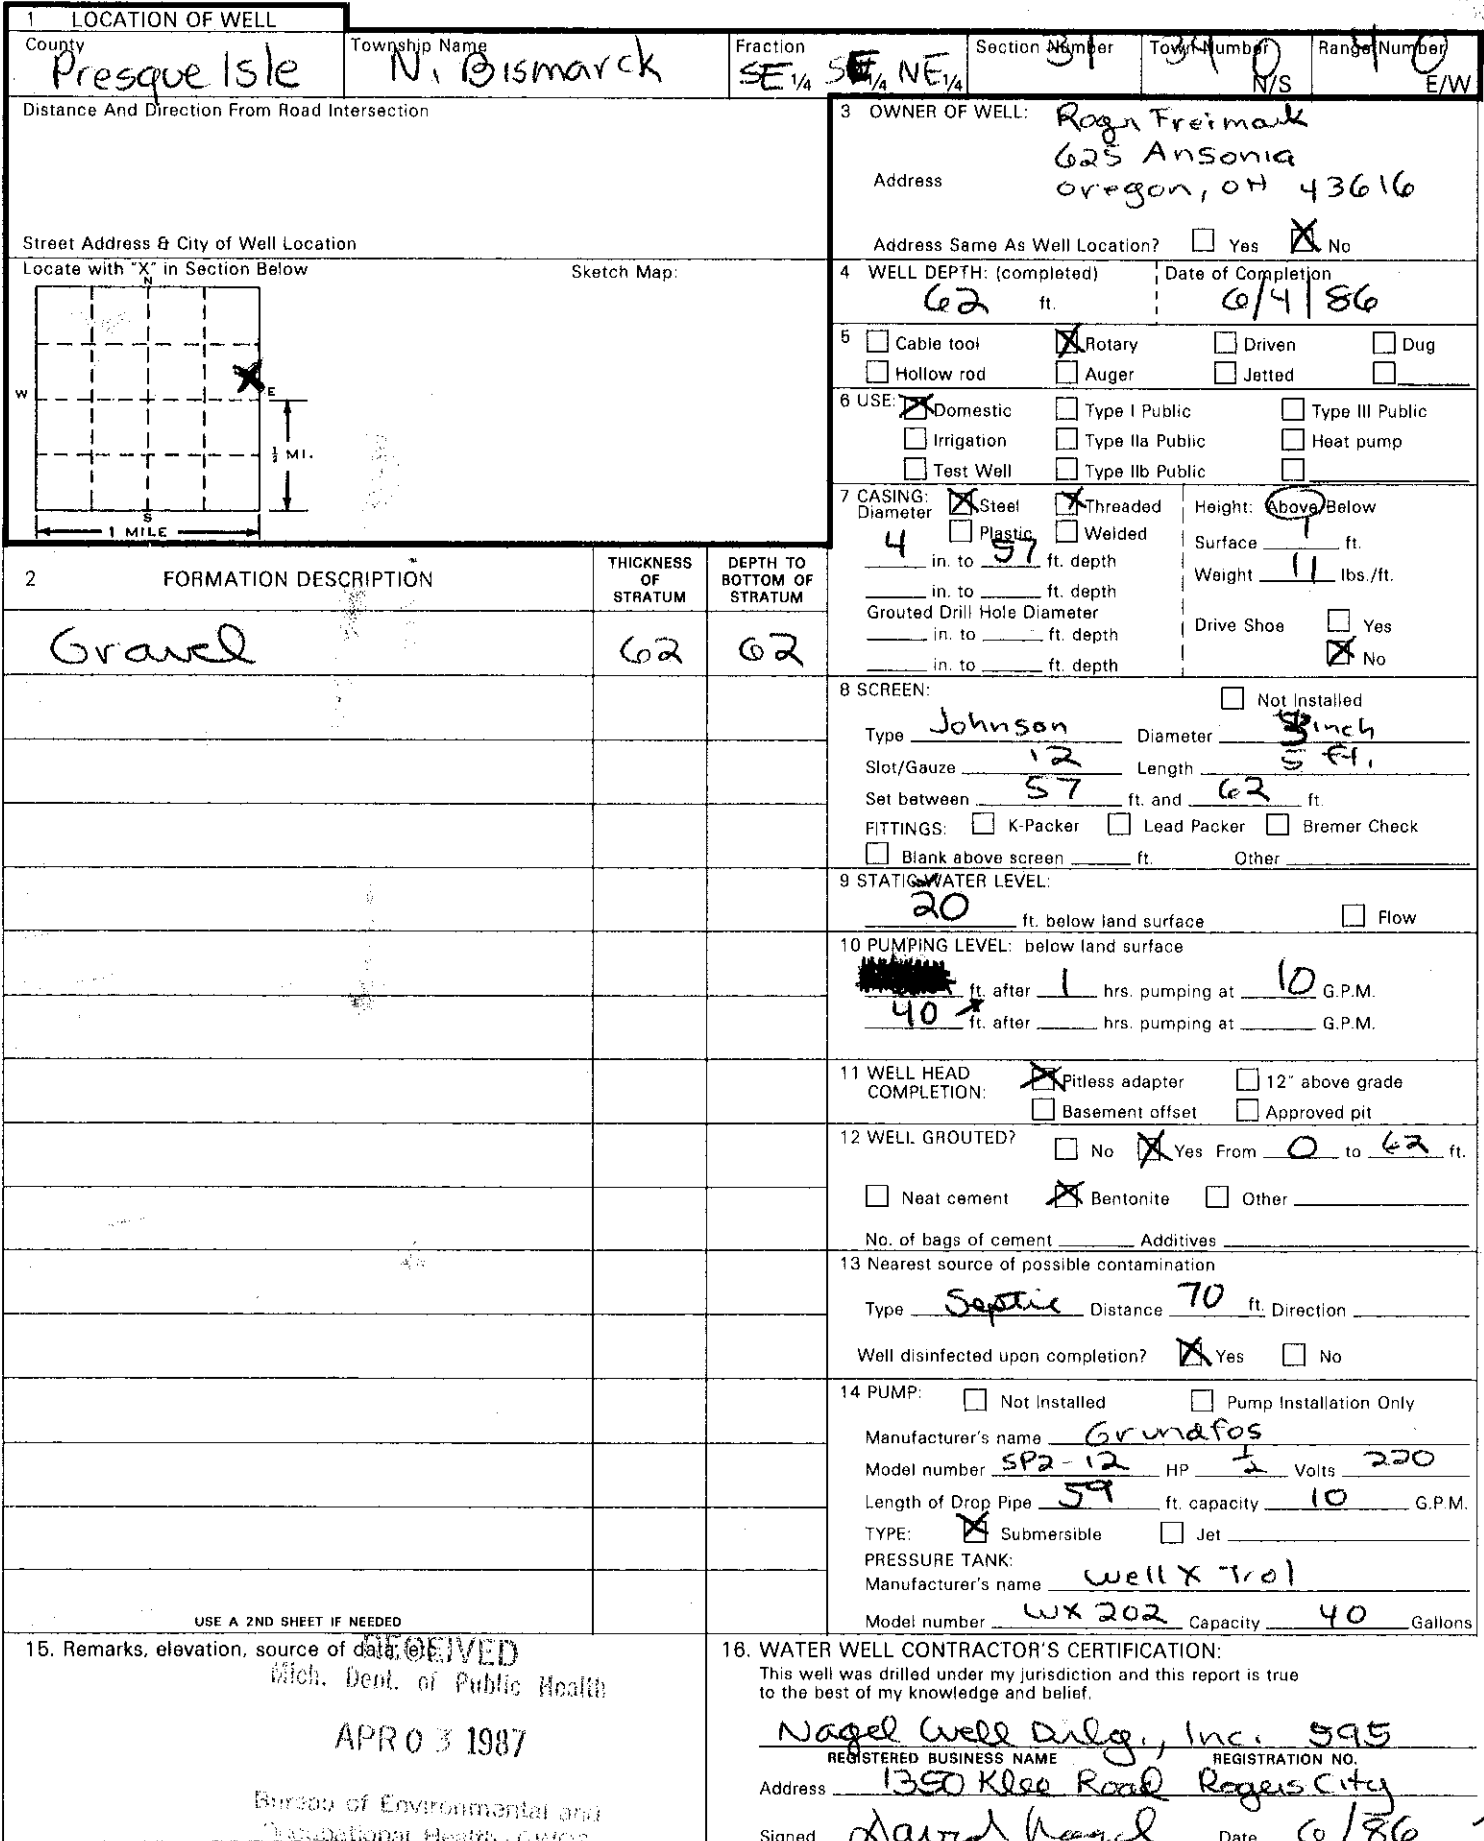 1 LOCATION OF WELL
County Presque Isle
Township Name N. Bismarck
Fraction SE 1/4 SE 1/4 NE 1/4
Section Number 31
Town Number N/S
Range Number E/W
Distance And Direction From Road Intersection
Street Address & City of Well Location
Locate with "X" in Section Below
Sketch Map:
N
W
X
E
½ MI.
S
1 MILE
2 FORMATION DESCRIPTION
THICKNESS OF STRATUM
DEPTH TO BOTTOM OF STRATUM
Gravel 62 62
USE A 2ND SHEET IF NEEDED
3 OWNER OF WELL: Roger Freimark
625 Ansonia
Address Oregon, OH 43616
Address Same As Well Location? Yes X No
4 WELL DEPTH: (completed) 62 ft.
Date of Completion 6/4/86
5 Cable tool X Rotary Driven Dug
Hollow rod Auger Jetted
6 USE: X Domestic Type I Public Type III Public
Irrigation Type IIa Public Heat pump
Test Well Type IIb Public
7 CASING: X Steel X Threaded
Diameter Plastic Welded
4 in. to 57 ft. depth
in. to ft. depth
Grouted Drill Hole Diameter
in. to ft. depth
in. to ft. depth
Height: Above/Below
Surface 1 ft.
Weight 11 lbs./ft.
Drive Shoe Yes
X No
8 SCREEN: Not Installed
Type Johnson Diameter inch
Slot/Gauze 12 Length 5 ft.
Set between 57 ft. and 62 ft.
FITTINGS: K-Packer Lead Packer Bremer Check
Blank above screen ft. Other
9 STATIC WATER LEVEL:
20 ft. below land surface Flow
10 PUMPING LEVEL: below land surface
ft. after 1 hrs. pumping at 10 G.P.M.
40 ft. after hrs. pumping at G.P.M.
11 WELL HEAD COMPLETION: X Pitless adapter 12" above grade
Basement offset Approved pit
12 WELL GROUTED? No X Yes From 0 to 62 ft.
Neat cement X Bentonite Other
No. of bags of cement Additives
13 Nearest source of possible contamination
Type Septic Distance 70 ft. Direction
Well disinfected upon completion? X Yes No
14 PUMP: Not Installed Pump Installation Only
Manufacturer's name Grundfos
Model number SP2-12 HP 1/2 Volts 220
Length of Drop Pipe 59 ft. capacity 10 G.P.M.
TYPE: X Submersible Jet
PRESSURE TANK:
Manufacturer's name Well X Trol
Model number WX 202 Capacity 40 Gallons
15. Remarks, elevation, source of data, etc.
RECEIVED
Mich. Dept. of Public Health
APR 03 1987
Bureau of Environmental and
Occupational Health
16. WATER WELL CONTRACTOR'S CERTIFICATION:
This well was drilled under my jurisdiction and this report is true
to the best of my knowledge and belief.
Nagel Well Drlg., Inc. 595
REGISTERED BUSINESS NAME REGISTRATION NO.
Address 1350 Klee Road Rogers City
Signed David Nagel Date 6/86